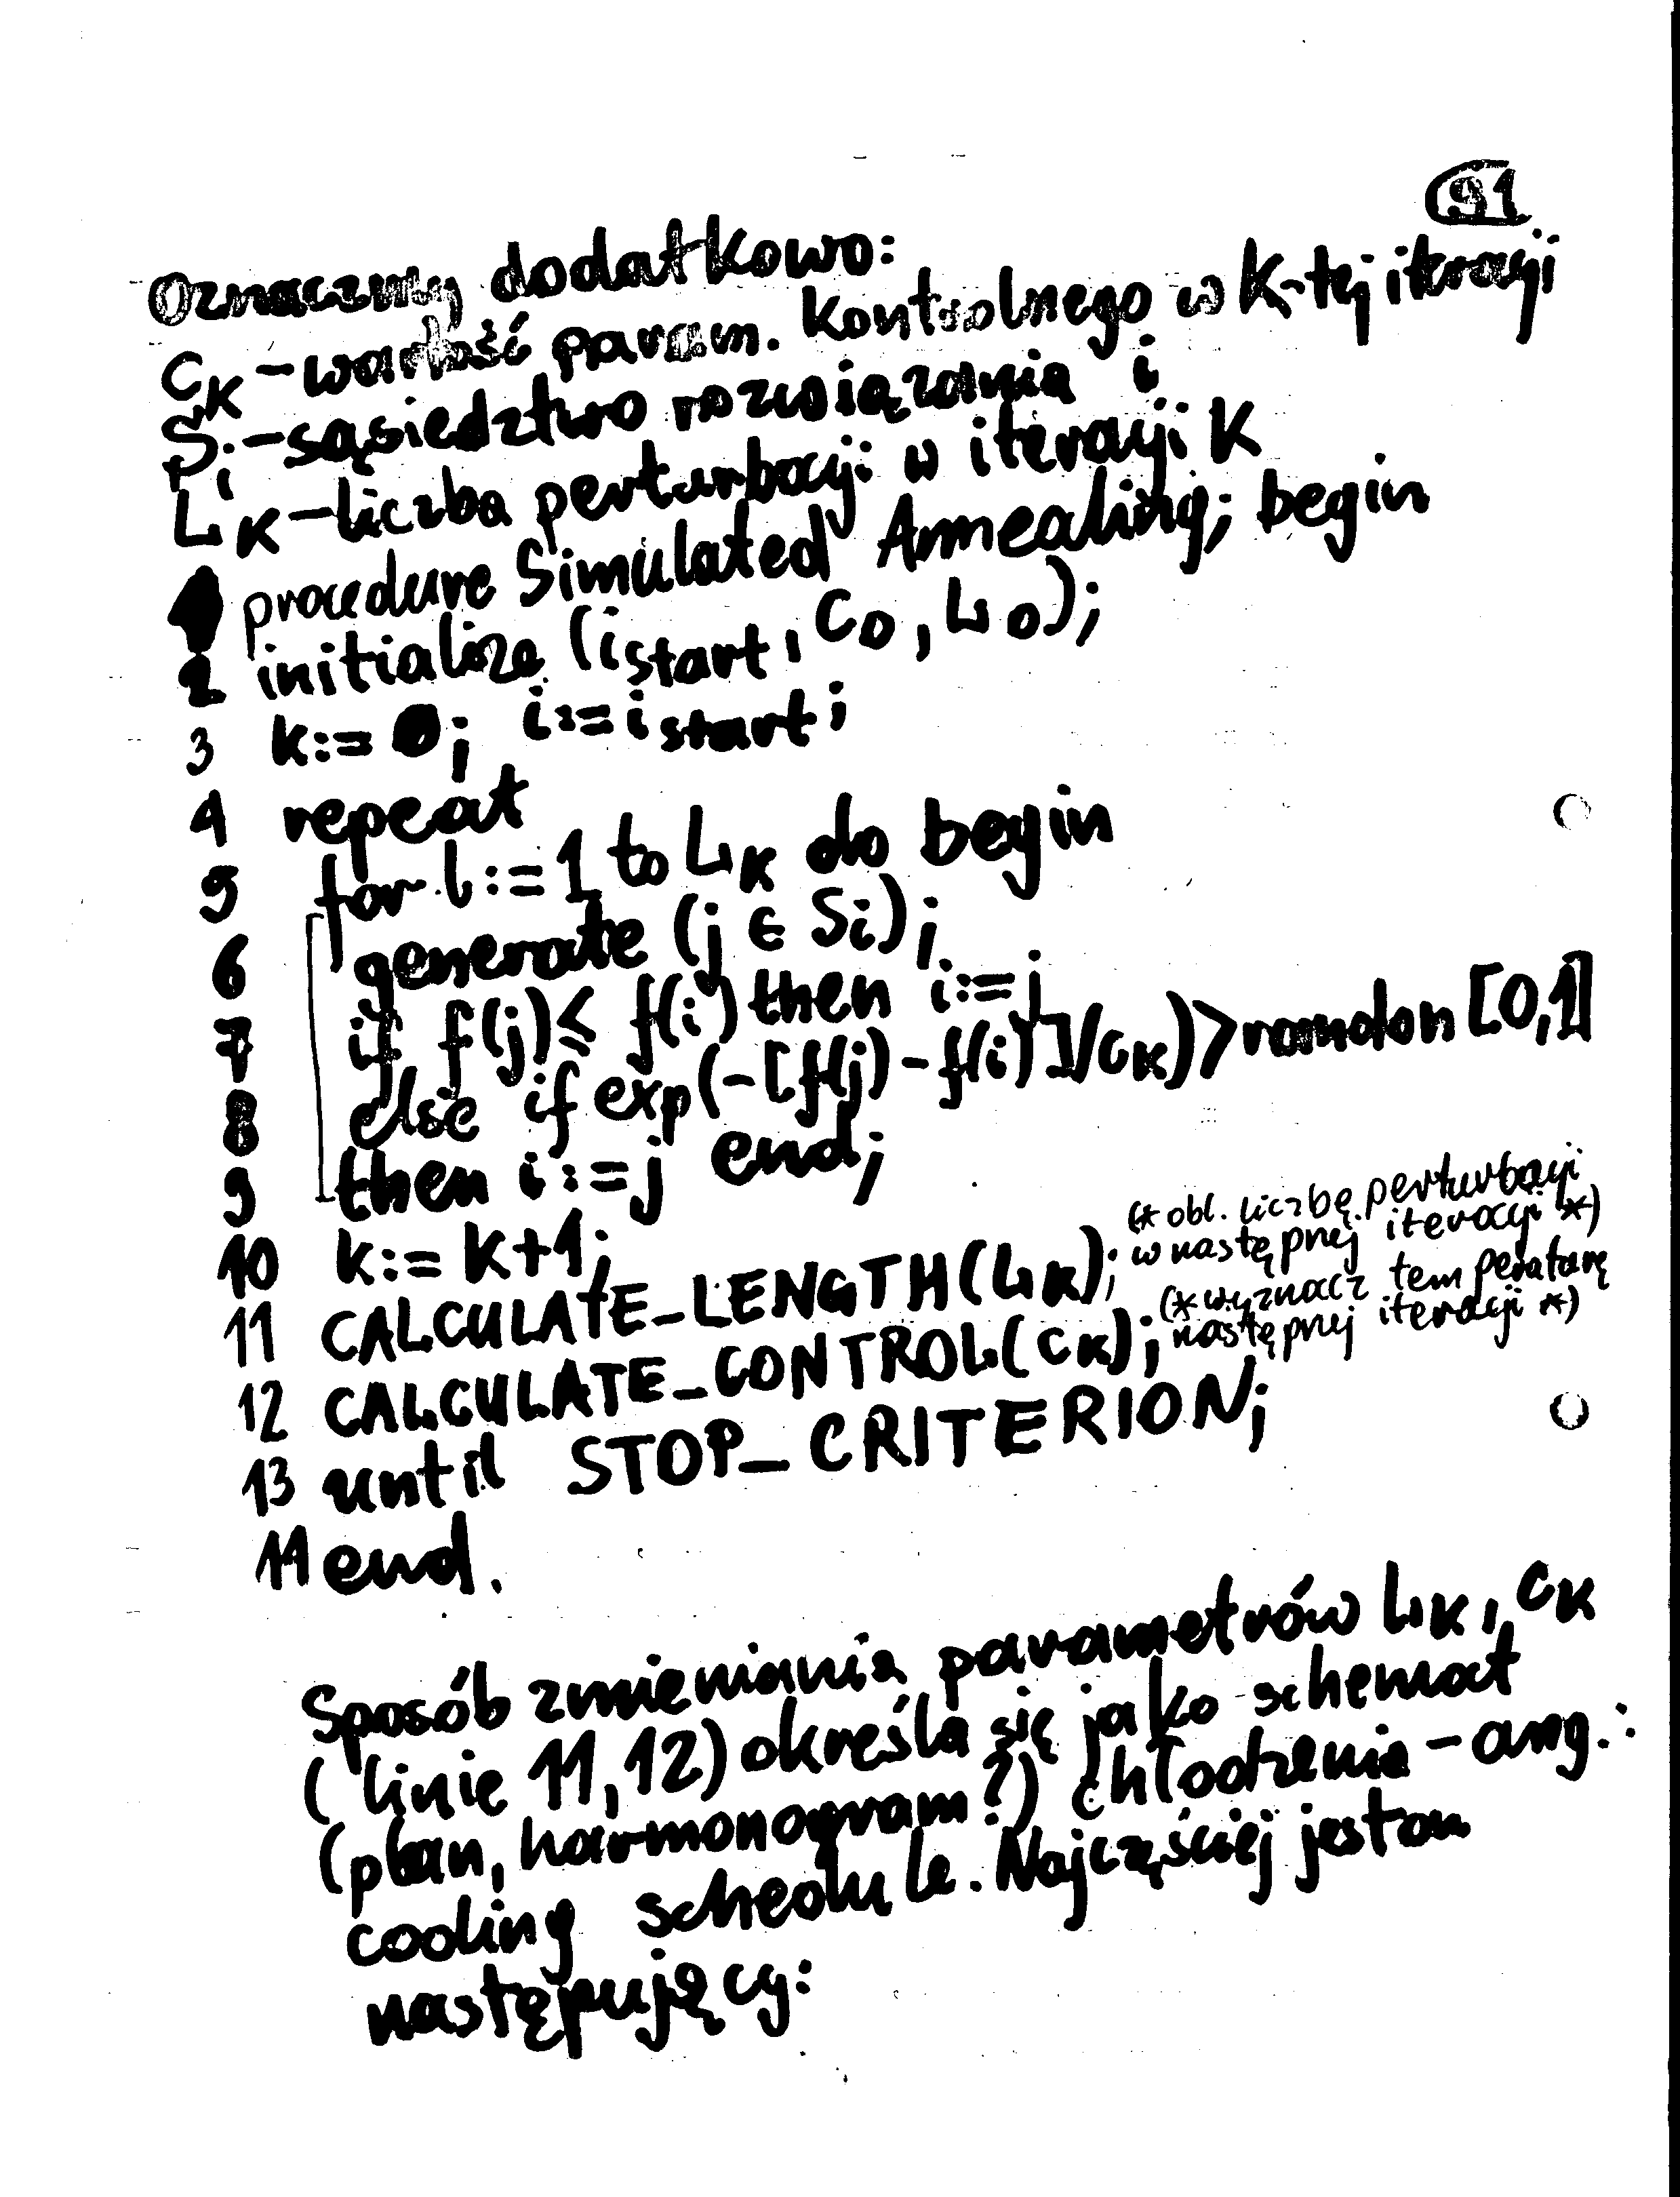 91
Oznaczmy dodatkowo:
cK – wartość param. kontrolnego w K-tej iteracji
Si – sąsiedztwo rozwiązania i
LK – liczba perturbacji w iteracji K
1 procedure Simulated Annealing; begin
2 initialize (istart, C0, L0);
3 k:= 0; i:= istart;
4 repeat
5 for l:=1 to LK do begin
6 generate (j ∈ Si);
7 if f(j) ≤ f(i) then i:=j
8 else if exp(-[f(j)-f(i)]/cK) > random [0,1]
9 then i:=j end;
10 k:= k+1;
11 CALCULATE_LENGTH(LK); (* obl. liczbę perturbacji
w następnej iteracji *)
12 CALCULATE_CONTROL(cK); (* wyznacz temperaturę
następnej iteracji *)
13 until STOP_CRITERION;
14 end.
Sposób zmieniania parametrów LK, cK
(linie 11,12) określa się jako schemat
(plan, harmonogram?) chłodzenia – ang.:
cooling schedule. Najczęściej jest on
następujący: